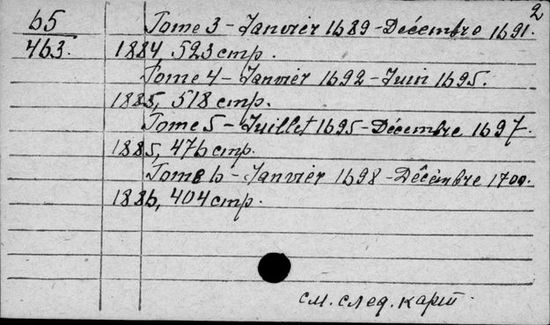 2
65 Tome 3 - Janvier 1689 - Décembre 1691.
463. 1884, 523 стр.
Tome 4 - Janvier 1692 - Juin 1695.
1885, 518 стр.
Tome 5 - Juillet 1695 - Décembre 1697.
1885, 476 стр.
Tome 6 - Janvier 1698 - Décembre 1700.
1886, 404 стр.
см. след. карт.